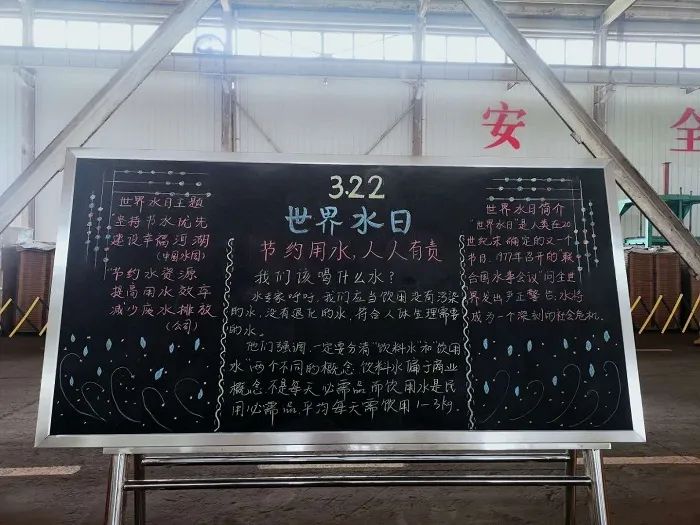 安全
3.22
世界水日
节约用水，人人有责
世界水日主题
坚持节水优先
建设幸福河湖
(中国水周)
"节约水资源
提高用水效率
减少废水排放
(公司)
我们该喝什么水？
水专家呼吁，我们应当饮用没有污染
的水，没有退化的水，符合人体生理需要
的水。
他们强调，一定要分清"饮料水"和"饮用
水"两个不同的概念，饮料水偏于商业
概念不是每天必需品而饮用水是民
用必需品，平均每天需饮用1-3kg.
世界水日简介
"世界水日"是人类在20
世纪末确定的又一个
节日。1977年召开的"联
合国水事会议"向全世
界发出严正警告，水将
成为一个深刻的社会危机。